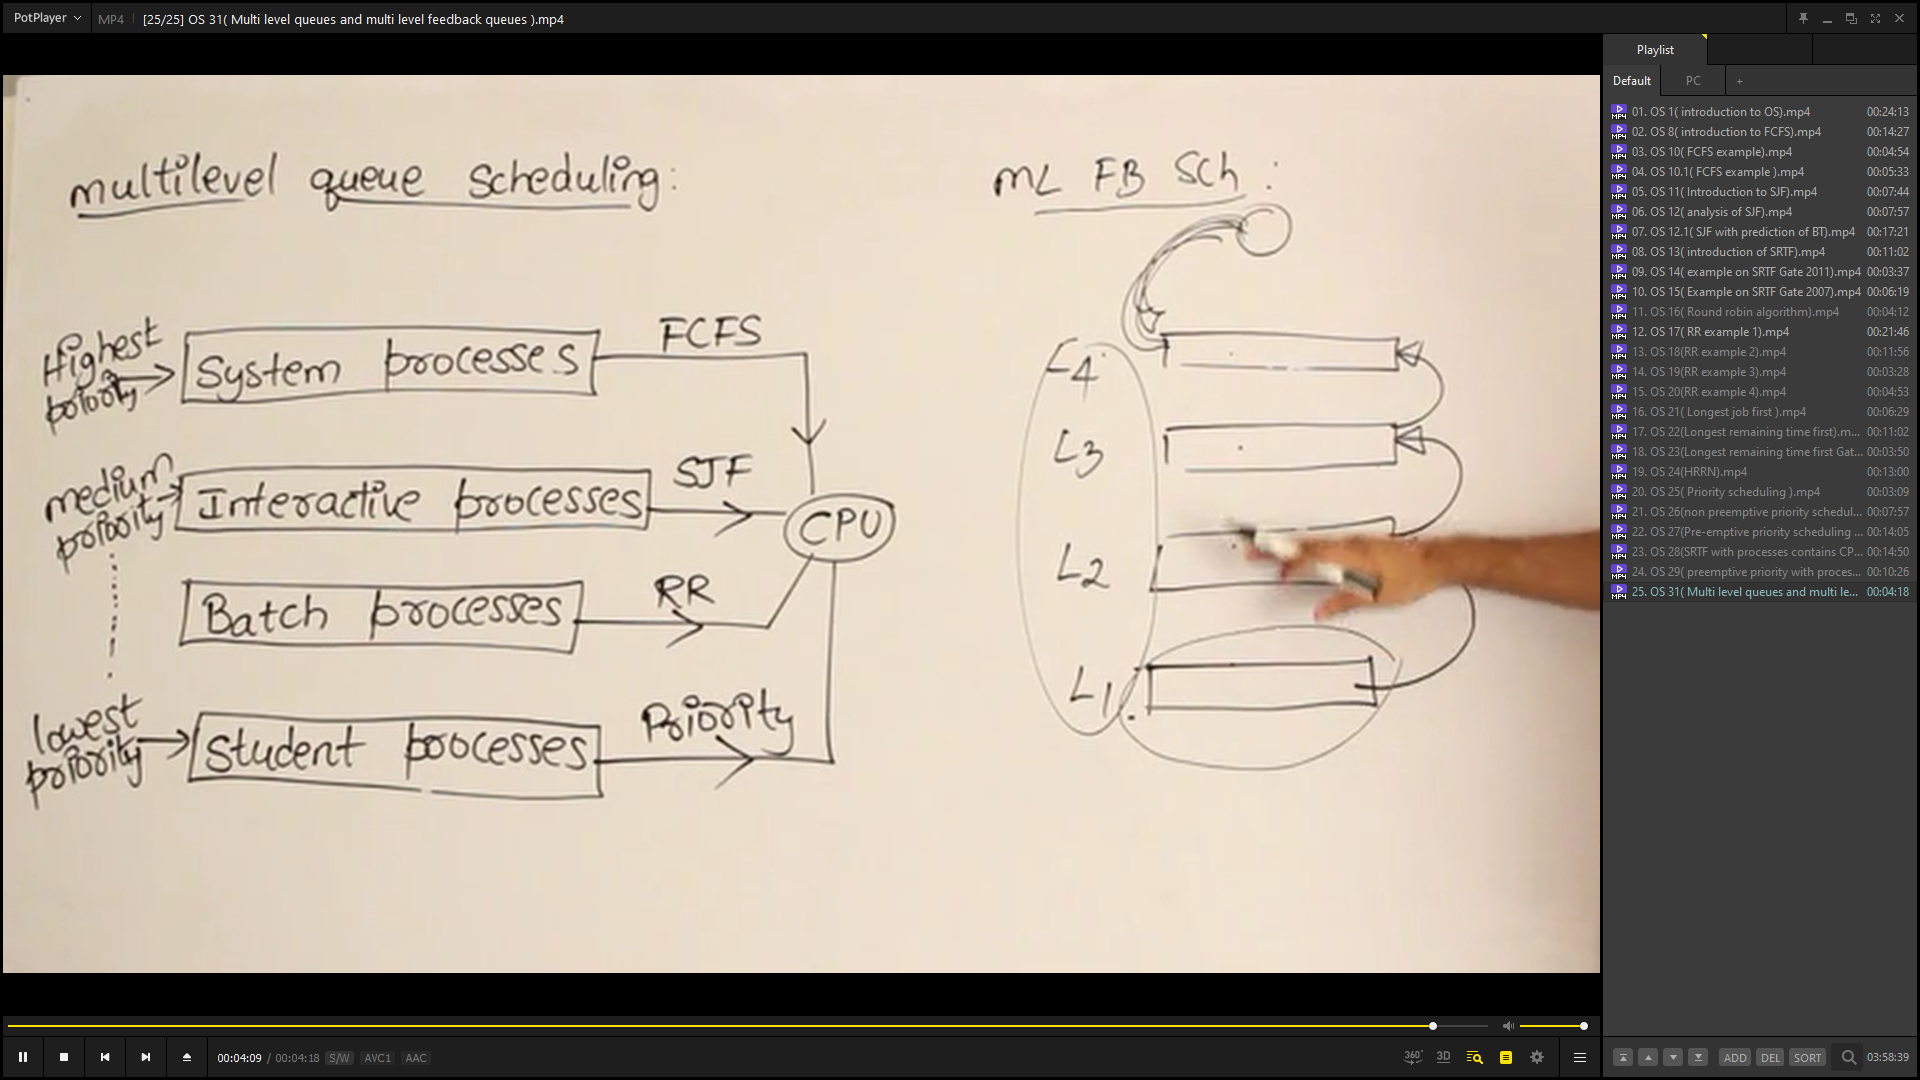 PotPlayer
MP4
[25/25] OS 31( Multi level queues and multi level feedback queues ).mp4
multilevel queue scheduling:
Highest priority
System processes
FCFS
medium priority
Interactive processes
SJF
CPU
Batch processes
RR
lowest priority
Student processes
Priority
ML FB Sch:
L4
L3
L2
L1
00:04:09 / 00:04:18 S/W AVC1 AAC
360° 3D
Playlist
Default PC +
01. OS 1( introduction to OS).mp4 00:24:13
02. OS 8( introduction to FCFS).mp4 00:14:27
03. OS 10( FCFS example).mp4 00:04:54
04. OS 10.1( FCFS example ).mp4 00:05:33
05. OS 11( Introduction to SJF).mp4 00:07:44
06. OS 12( analysis of SJF).mp4 00:07:57
07. OS 12.1( SJF with prediction of BT).mp4 00:17:21
08. OS 13( introduction of SRTF).mp4 00:11:02
09. OS 14( example on SRTF Gate 2011).mp4 00:03:37
10. OS 15( Example on SRTF Gate 2007).mp4 00:06:19
11. OS 16( Round robin algorithm).mp4 00:04:12
12. OS 17( RR example 1).mp4 00:21:46
13. OS 18(RR example 2).mp4 00:11:56
14. OS 19(RR example 3).mp4 00:03:28
15. OS 20(RR example 4).mp4 00:04:53
16. OS 21( Longest job first ).mp4 00:06:29
17. OS 22(Longest remaining time first).m... 00:11:02
18. OS 23(Longest remaining time first Gat... 00:03:50
19. OS 24(HRRN).mp4 00:13:00
20. OS 25( Priority scheduling ).mp4 00:03:09
21. OS 26(non preemptive priority schedul... 00:07:57
22. OS 27(Pre-emptive priority scheduling ... 00:14:05
23. OS 28(SRTF with processes contains CP... 00:14:50
24. OS 29( preemptive priority with proces... 00:10:26
25. OS 31( Multi level queues and multi le... 00:04:18
ADD DEL SORT 03:58:39